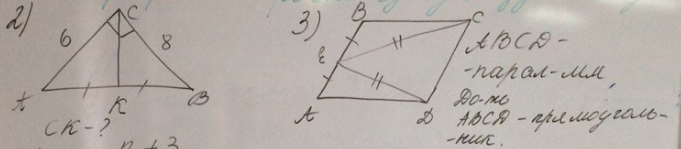 2)
C
6
8
A
K
B
CK-?
3)
B
C
E
A
D
ABCD -
-парал-мм
До-ть
ABCD - прямоуголь-
-ник.